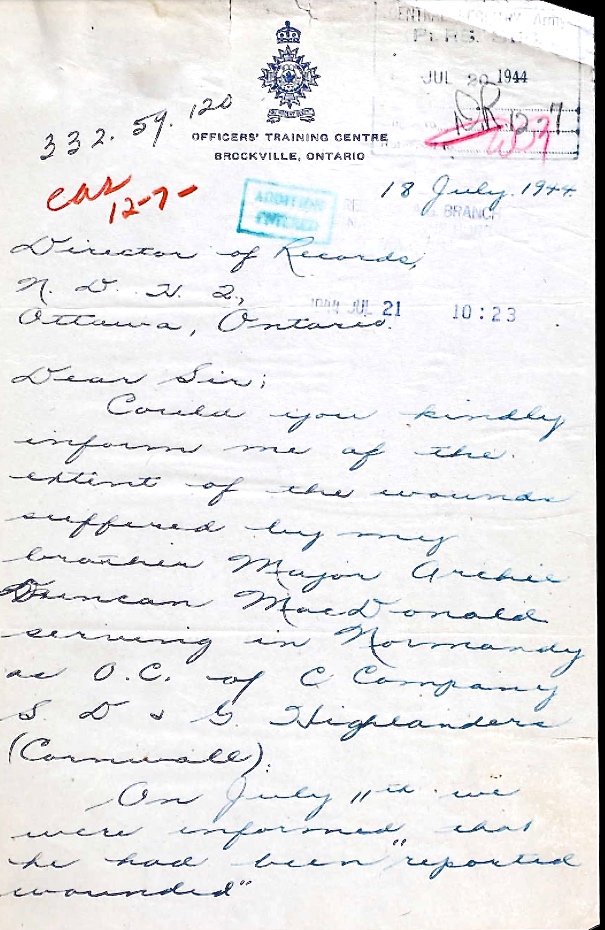 CENTRAL
JUL 20 1944
DR 12.7
332.59.120
OFFICERS' TRAINING CENTRE
BROCKVILLE, ONTARIO
Cas
12-7-
18 July. 1944
ADDITION
ENTERED
BRANCH
Director of Records,
N. D. H. Q.,
1944 JUL 21 10:23
Ottawa, Ontario.
Dear Sir;
Could you kindly
inform me of the
extent of the wounds
suffered by my
brother Major Archie
Duncan MacDonald
serving in Normandy
as O.C. of C Company
S D & G Highlanders
(Cornwall).
On July 11th we
were informed that
he had been "reported
wounded"